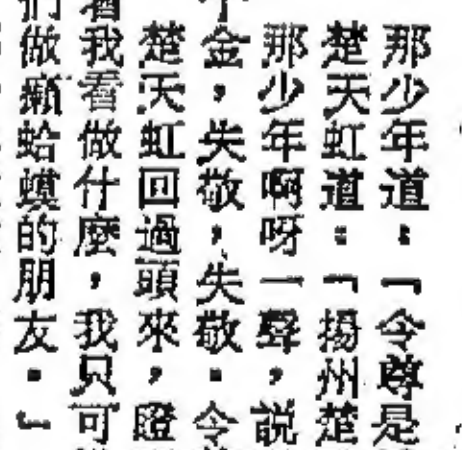 那少年道：「令尊是
楚天虹道：「揚州楚
那少年啊呀一聲，說
金，失敬，失敬．令
楚天虹回過頭來，瞪
着我看做什麼，我只可
們做癩蛤蟆的朋友．」